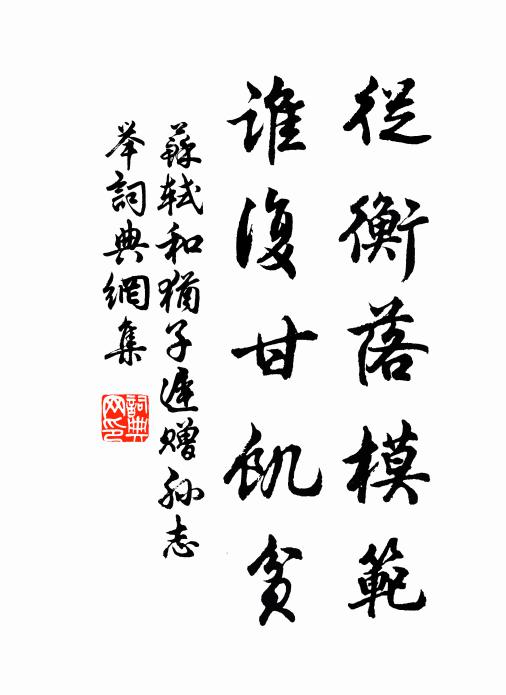 從衡落模範
誰復甘飢貧
蘇軾和猶子遲贈孫志
举詞典網集
詞典网印